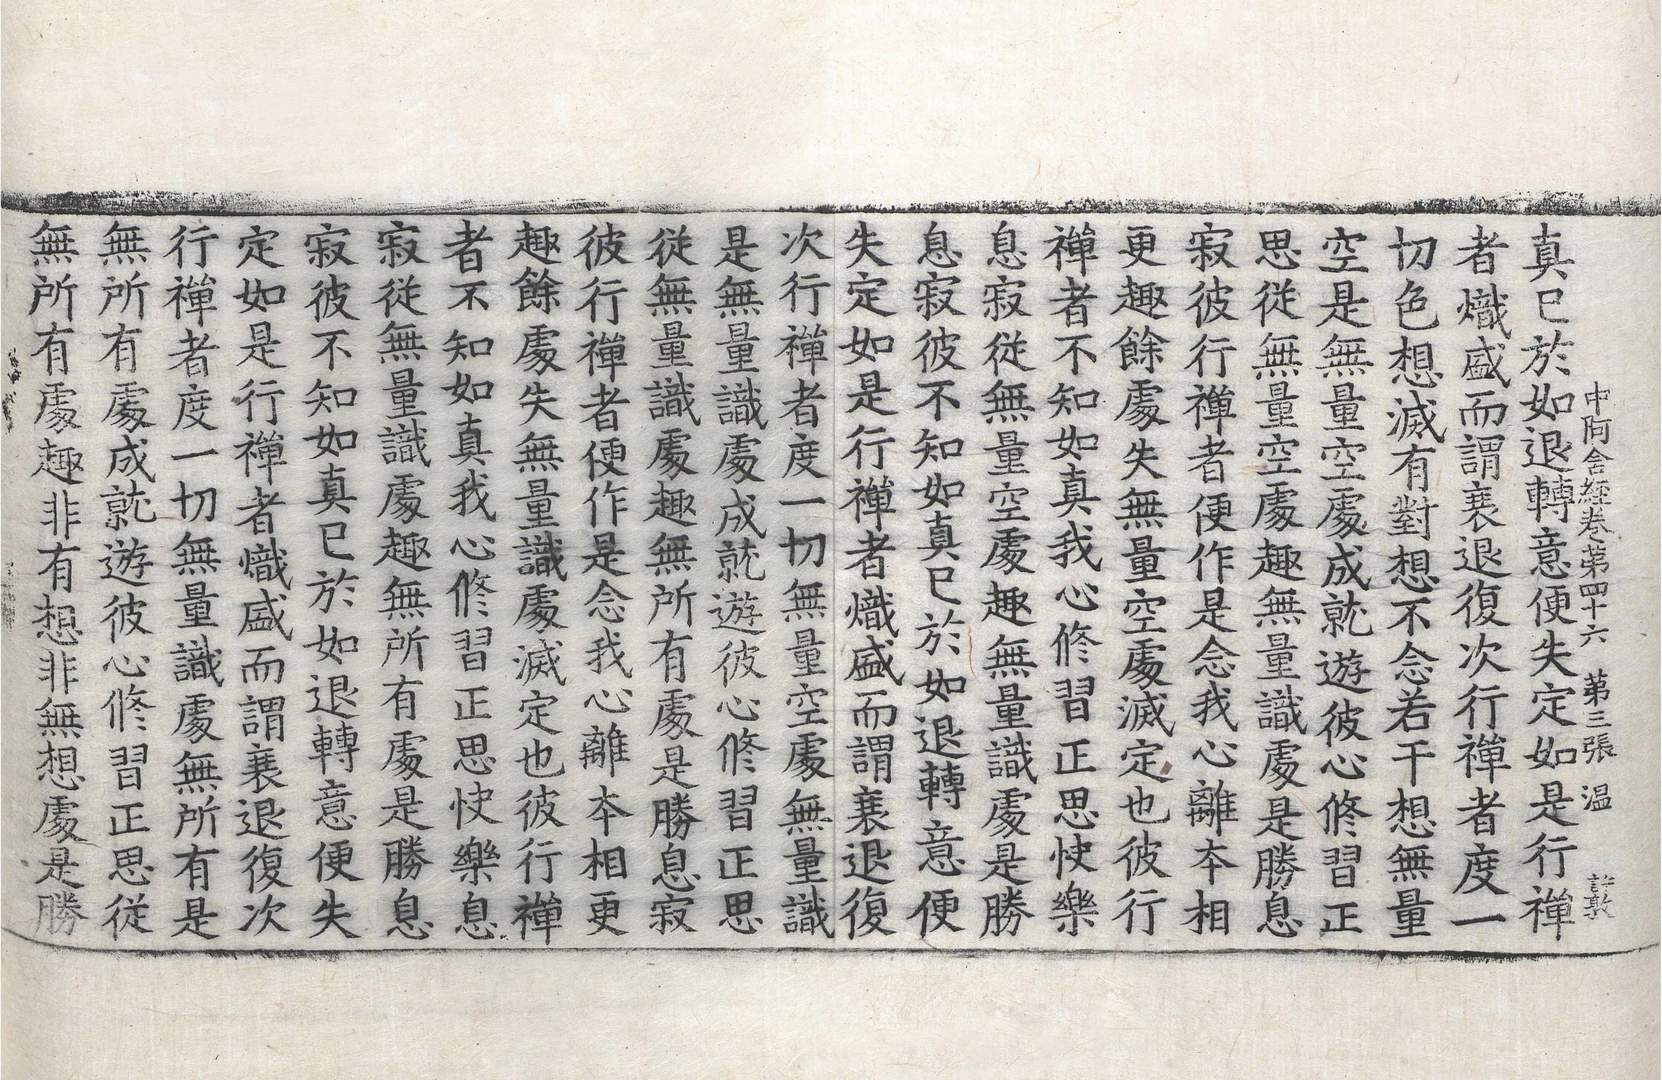 中阿含經卷第四十六 第三張 温
真已於如退轉意便失定如是行禪
者熾盛而謂衰退復次行禪者度一
切色想滅有對想不念若干想無量
空是無量空處成就遊彼心修習正
思從無量空處趣無量識處是勝息
寂彼行禪者便作是念我心離夲相
更趣餘處失無量空處滅定也彼行
禪者不知如真我心修習正思快樂
息寂從無量空處趣無量識處是勝
息寂彼不知如真已於如退轉意便
失定如是行禪者熾盛而謂衰退復
次行禪者度一切無量空處無量識
是無量識處成就遊彼心修習正思
從無量識處趣無所有處是勝息寂
彼行禪者便作是念我心離夲相更
趣餘處失無量識處滅定也彼行禪
者不知如真我心修習正思快樂息
寂從無量識處趣無所有處是勝息
寂彼不知如真已於如退轉意便失
定如是行禪者熾盛而謂衰退復次
行禪者度一切無量識處無所有是
無所有處成就遊彼心修習正思從
無所有處趣非有想非無想處是勝